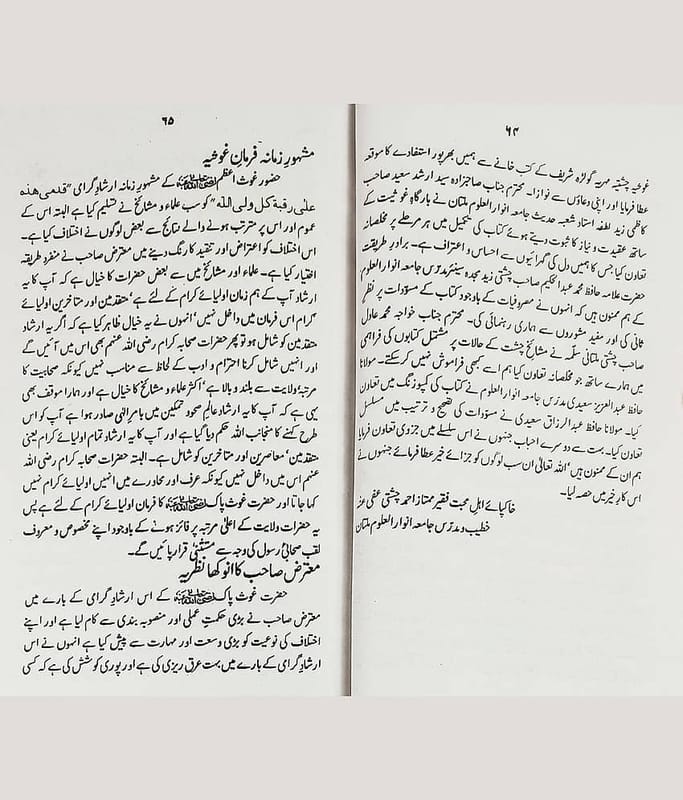 ۶۴
غوثیہ چشتیہ مہریہ گولڑہ شریف کے کتب خانے سے ہمیں بھرپور استفادے کا موقعہ
عطا فرمایا اور اپنی دعاؤں سے نوازا۔ محترم جناب صاحبزادہ سید ارشد سعید صاحب
کاظمی زید لطفہ استاذ شعبہ حدیث جامعہ انوار العلوم ملتان نے بارگاہِ غوثیت کے
ساتھ عقیدت و نیاز کا ثبوت دیتے ہوئے کتاب کی تکمیل میں ہر مرحلے پر مخلصانہ
تعاون کیا جس کا ہمیں دل کی گہرائیوں سے احساس و اعتراف ہے۔ برادرِ طریقت
حضرت علامہ حافظ محمد عبدالحکیم صاحب چشتی زید مجدہ سینئر مدرس جامعہ انوار العلوم
کے ہم ممنون ہیں کہ انہوں نے مصروفیات کے باوجود کتاب کے مسوّدات پر نظرِ
ثانی کی اور مفید مشوروں سے ہماری رہنمائی کی۔ محترم جناب خواجہ محمد عادل
صاحب چشتی ملتانی سلّمہ نے مشائخِ چشت کے حالات پر مشتمل کتابوں کی فراہمی
میں ہمارے ساتھ جو مخلصانہ تعاون کیا ہم اسے کبھی فراموش نہیں کرسکتے۔ مولانا
حافظ عبدالعزیز سعیدی مدرّس جامعہ انوار العلوم نے کتاب کی کمپوزنگ میں تعاون
کیا۔ مولانا حافظ عبدالرزاق سعیدی نے مسوّدات کی تصحیح و ترتیب میں مسلسل
تعاون کیا۔ بہت سے دوسرے احباب جنہوں نے اس سلسلے میں جزوی تعاون فرمایا
ہم ان کے ممنون ہیں' اللہ تعالیٰ ان سب لوگوں کو جزائے خیر عطا فرمائے جنہوں نے
اس کارِ خیر میں حصہ لیا۔
خاکپائے اہلِ محبت فقیر ممتاز احمد چشتی عفی عنہ
خطیب و مدرّس جامعہ انوار العلوم ملتان
۶۵
مشہورِ زمانہ فرمانِ غوثیہ
حضور غوثِ اعظم کے مشہورِ زمانہ ارشادِ گرامی "قدمی هذه
علی رقبة کل ولی الله" کو سب علماء و مشائخ نے تسلیم کیا ہے البتہ اس کے
عموم اور اس پر مترتب ہونے والے نتائج سے بعض لوگوں نے اختلاف کیا ہے۔
اس اختلاف کو اعتراض اور تنقید کا رنگ دینے میں معترض صاحب نے منفرد طریقہ
اختیار کیا ہے۔ علماء اور مشائخ میں سے بعض حضرات کا خیال ہے کہ آپ کا یہ
ارشاد آپ کے ہم زمان اولیائے کرام کے لئے ہے' متقدمین اور متاخرین اولیائے
کرام اس فرمان میں داخل نہیں' انہوں نے یہ خیال ظاہر کیا ہے کہ اگر یہ ارشاد
متقدمین کو شامل ہو تو پھر حضرات صحابہ کرام رضی اللہ عنہم بھی اس میں آئیں گے
اور انہیں شامل کرنا احترام و ادب کے لحاظ سے مناسب نہیں کیونکہ صحابیت کا
مرتبہ ولایت سے بلند و بالا ہے' اکثر علماء و مشائخ کا خیال ہے اور ہمارا موقف بھی
یہی ہے کہ آپ کا یہ ارشاد عالمِ صحو و تمکین میں بامرِ الٰہی صادر ہوا ہے آپ کو اس
طرح کہنے کا منجانب اللہ حکم دیا گیا ہے اور آپ کا یہ ارشاد تمام اولیائے کرام یعنی
متقدمین' معاصرین اور متاخرین کو شامل ہے۔ البتہ حضرات صحابہ کرام رضی اللہ
عنہم اس میں داخل نہیں کیونکہ عرف اور محاورے میں انہیں اولیائے کرام نہیں
کہا جاتا اور حضرت غوث پاک کا فرمان اولیائے کرام کے لئے ہے پس
یہ حضرات ولایت کے اعلیٰ مرتبہ پر فائز ہونے کے باوجود اپنے مخصوص و معروف
لقب صحابیٔ رسول کی وجہ سے مستثنیٰ قرار پائیں گے۔
معترض صاحب کا انوکھا نظریہ
حضرت غوث پاک کے اس ارشادِ گرامی کے بارے میں
معترض صاحب نے بڑی حکمتِ عملی اور منصوبہ بندی سے کام لیا ہے اور اپنے
اختلاف کی نوعیت کو بڑی وسعت اور مہارت سے پیش کیا ہے انہوں نے اس
ارشادِ گرامی کے بارے میں بہت عرق ریزی کی ہے اور پوری کوشش کی ہے کہ کسی